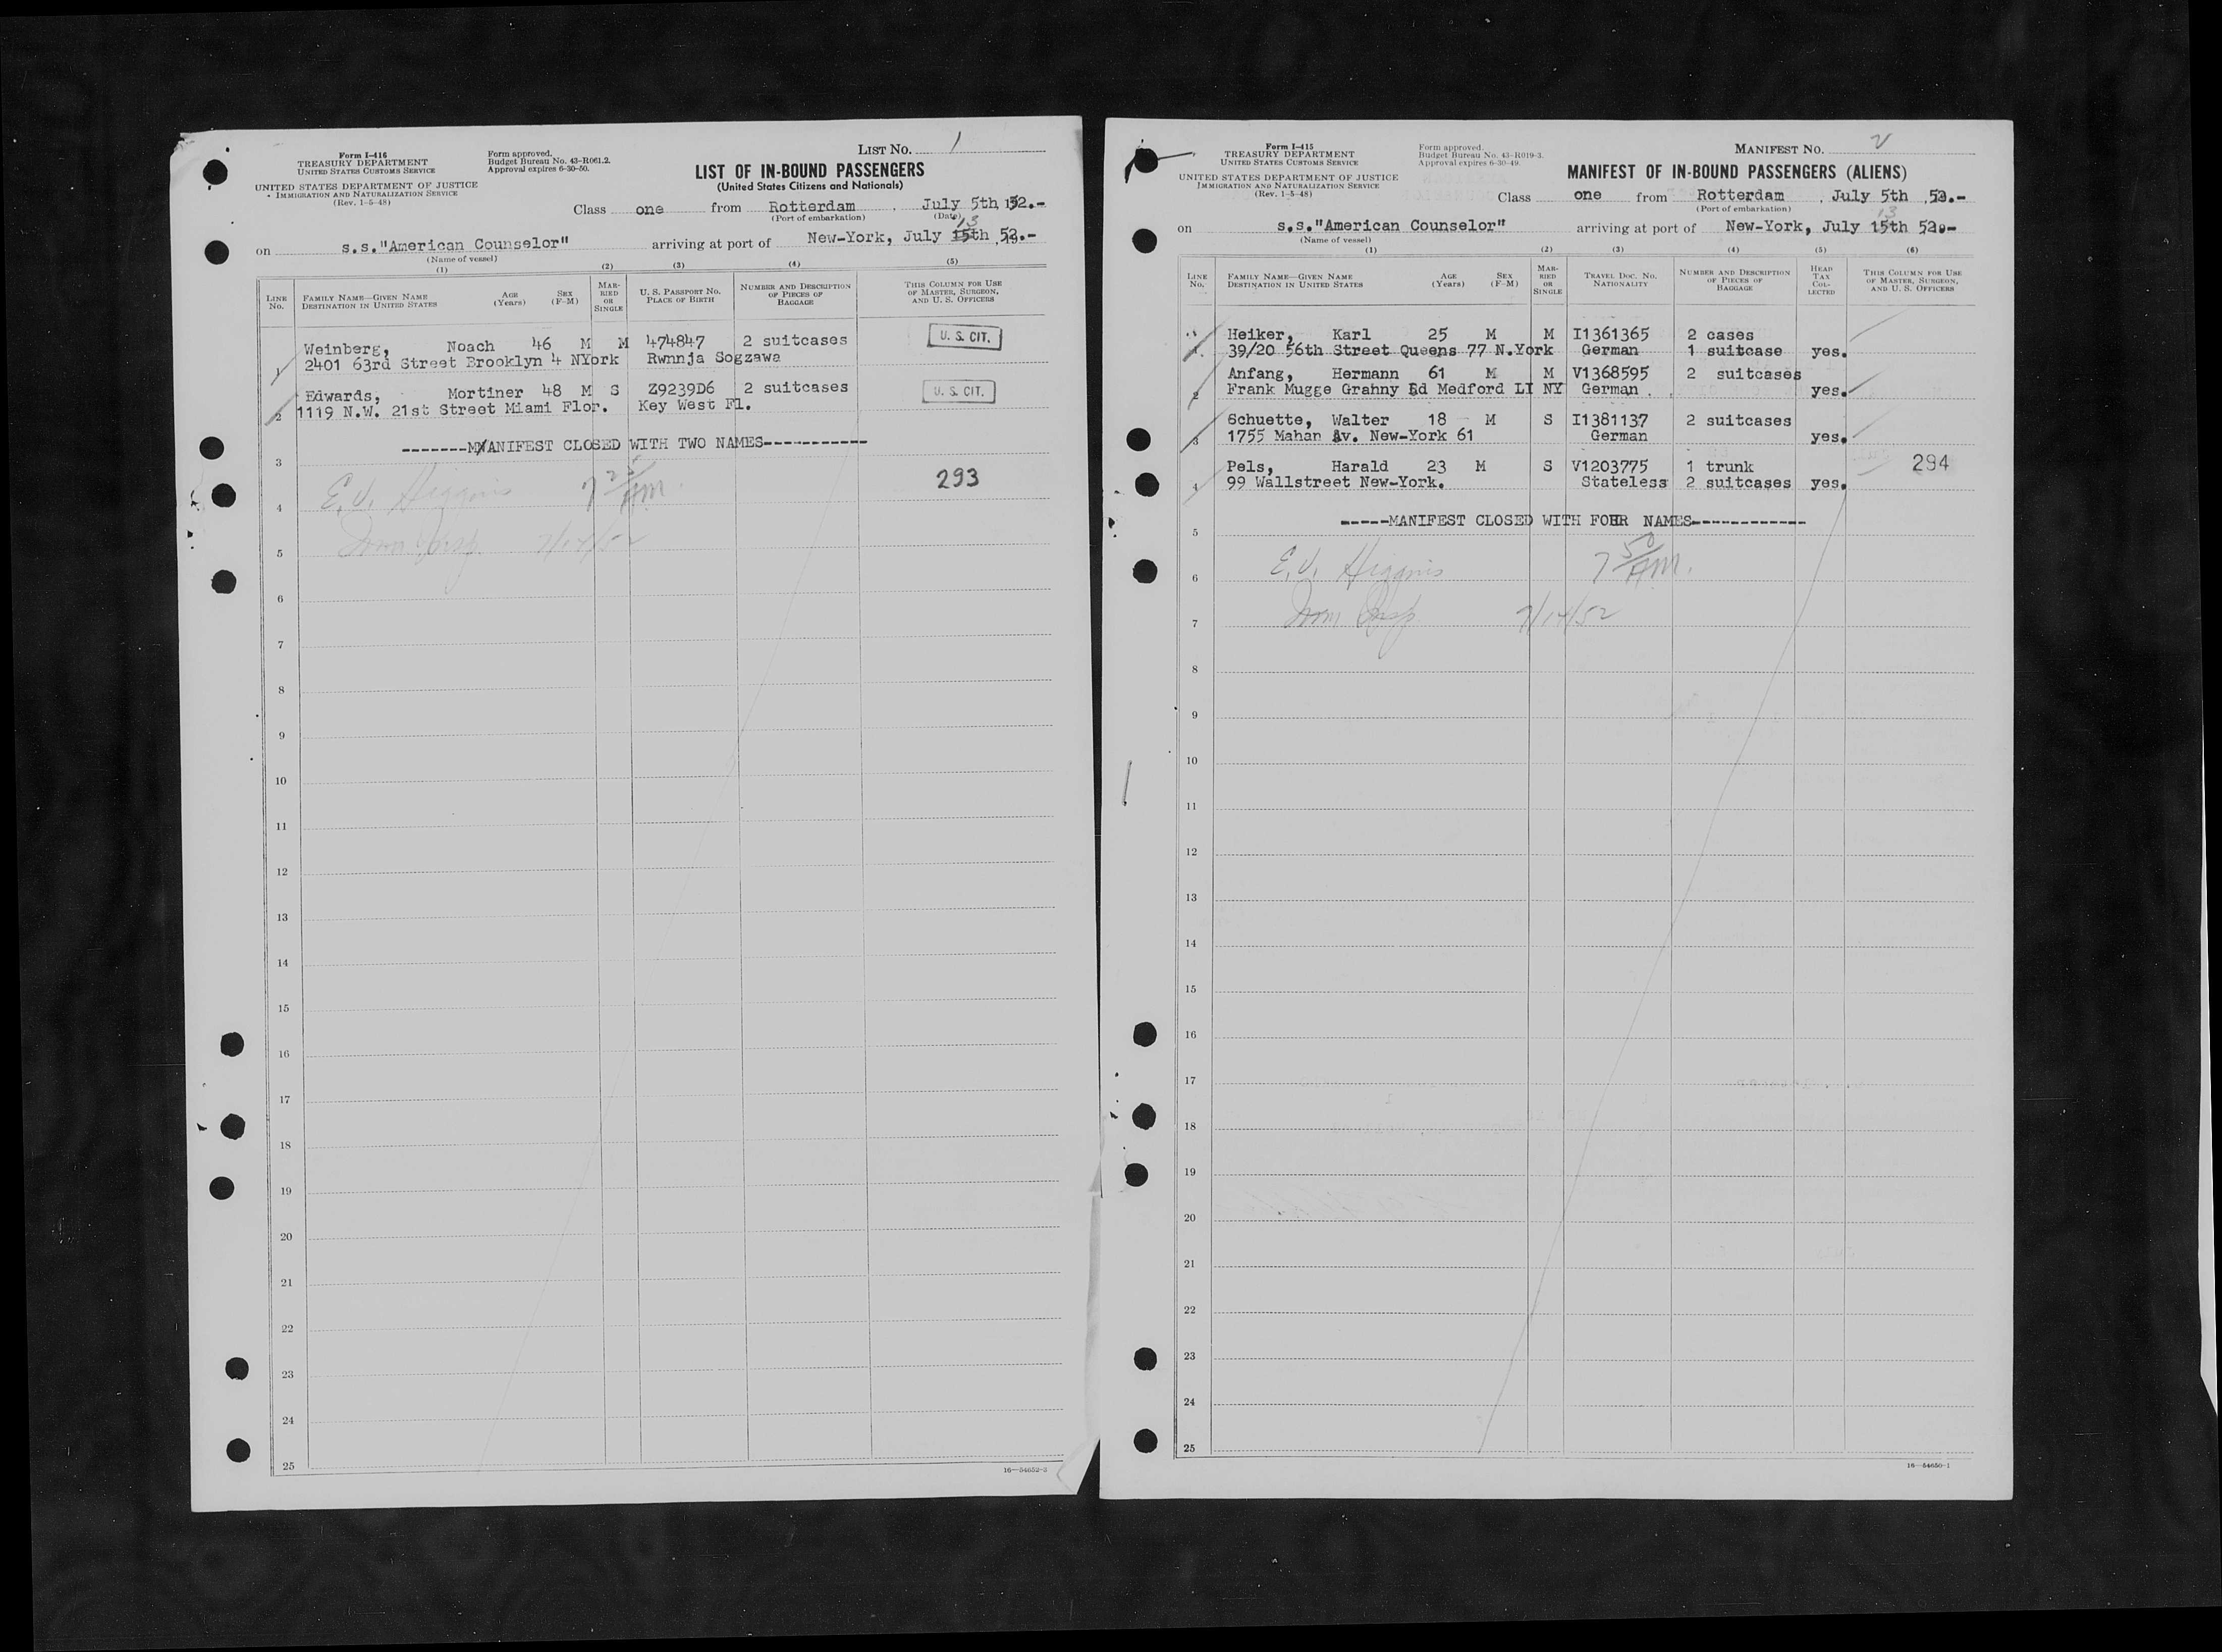 Form I-416
TREASURY DEPARTMENT
UNITED STATES CUSTOMS SERVICE
UNITED STATES DEPARTMENT OF JUSTICE
IMMIGRATION AND NATURALIZATION SERVICE
(Rev. 1-5-48)
Form approved.
Budget Bureau No. 43-R061.2.
Approval expires 6-30-50.
LIST NO. 1
LIST OF IN-BOUND PASSENGERS
(United States Citizens and Nationals)
Class one from Rotterdam, July 5th, 52.-
(Port of embarkation) (Date)
13
on s.s."American Counselor" arriving at port of New-York, July 15th, 52.-
(Name of vessel)
(1) (2) (3) (4) (5)
LINE NO.
FAMILY NAME—GIVEN NAME AGE (Years) SEX (F-M)
DESTINATION IN UNITED STATES
MARRIED OR SINGLE
U. S. PASSPORT NO.
PLACE OF BIRTH
NUMBER AND DESCRIPTION OF PIECES OF BAGGAGE
THIS COLUMN FOR USE OF MASTER, SURGEON, AND U. S. OFFICERS
Weinberg, Noach 46 M M 474847 2 suitcases U. S. CIT.
1 2401 63rd Street Brooklyn 4 NYork Rwnnja Sogzawa
Edwards, Mortiner 48 M S Z9239D6 2 suitcases U. S. CIT.
2 1119 N.W. 21st Street Miami Flor. Key West Fl.
-------MANIFEST CLOSED WITH TWO NAMES-----------
3
E. V. Higgins 293
4
Imm Insp. 7/14/52
5
6
7
8
9
10
11
12
13
14
15
16
17
18
19
20
21
22
23
24
25
16—54652-3
Form I-415
TREASURY DEPARTMENT
UNITED STATES CUSTOMS SERVICE
UNITED STATES DEPARTMENT OF JUSTICE
IMMIGRATION AND NATURALIZATION SERVICE
(Rev. 1-5-48)
Form approved.
Budget Bureau No. 43-R019-3.
Approval expires 6-30-49.
MANIFEST NO. 2
MANIFEST OF IN-BOUND PASSENGERS (ALIENS)
Class one from Rotterdam, July 5th, 52.-
(Port of embarkation)
13
on s.s."American Counselor" arriving at port of New-York, July 15th 52.-
(Name of vessel)
(1) (2) (3) (4) (5) (6)
LINE NO.
FAMILY NAME—GIVEN NAME AGE (Years) SEX (F-M)
DESTINATION IN UNITED STATES
MARRIED OR SINGLE
TRAVEL DOC. NO.
NATIONALITY
NUMBER AND DESCRIPTION OF PIECES OF BAGGAGE
HEAD TAX COLLECTED
THIS COLUMN FOR USE OF MASTER, SURGEON, AND U. S. OFFICERS
Heiker, Karl 25 M M I1361365 2 cases
1 39/20 56th Street Queens 77 N.York German 1 suitcase yes.
Anfang, Hermann 61 M M V1368595 2 suitcases
2 Frank Mugge Grahny Rd Medford LI NY German yes.
Schuette, Walter 18 M S I1381137 2 suitcases
3 1755 Mahan Av. New-York 61 German yes.
Pels, Harald 23 M S V1203775 1 trunk 294
4 99 Wallstreet New-York. Stateless 2 suitcases yes.
-----MANIFEST CLOSED WITH FOUR NAMES------------
5
E. V. Higgins 7 50 AM.
6
Imm Insp. 7/14/52
7
8
9
10
11
12
13
14
15
16
17
18
19
20
21
22
23
24
25
16—54650-1